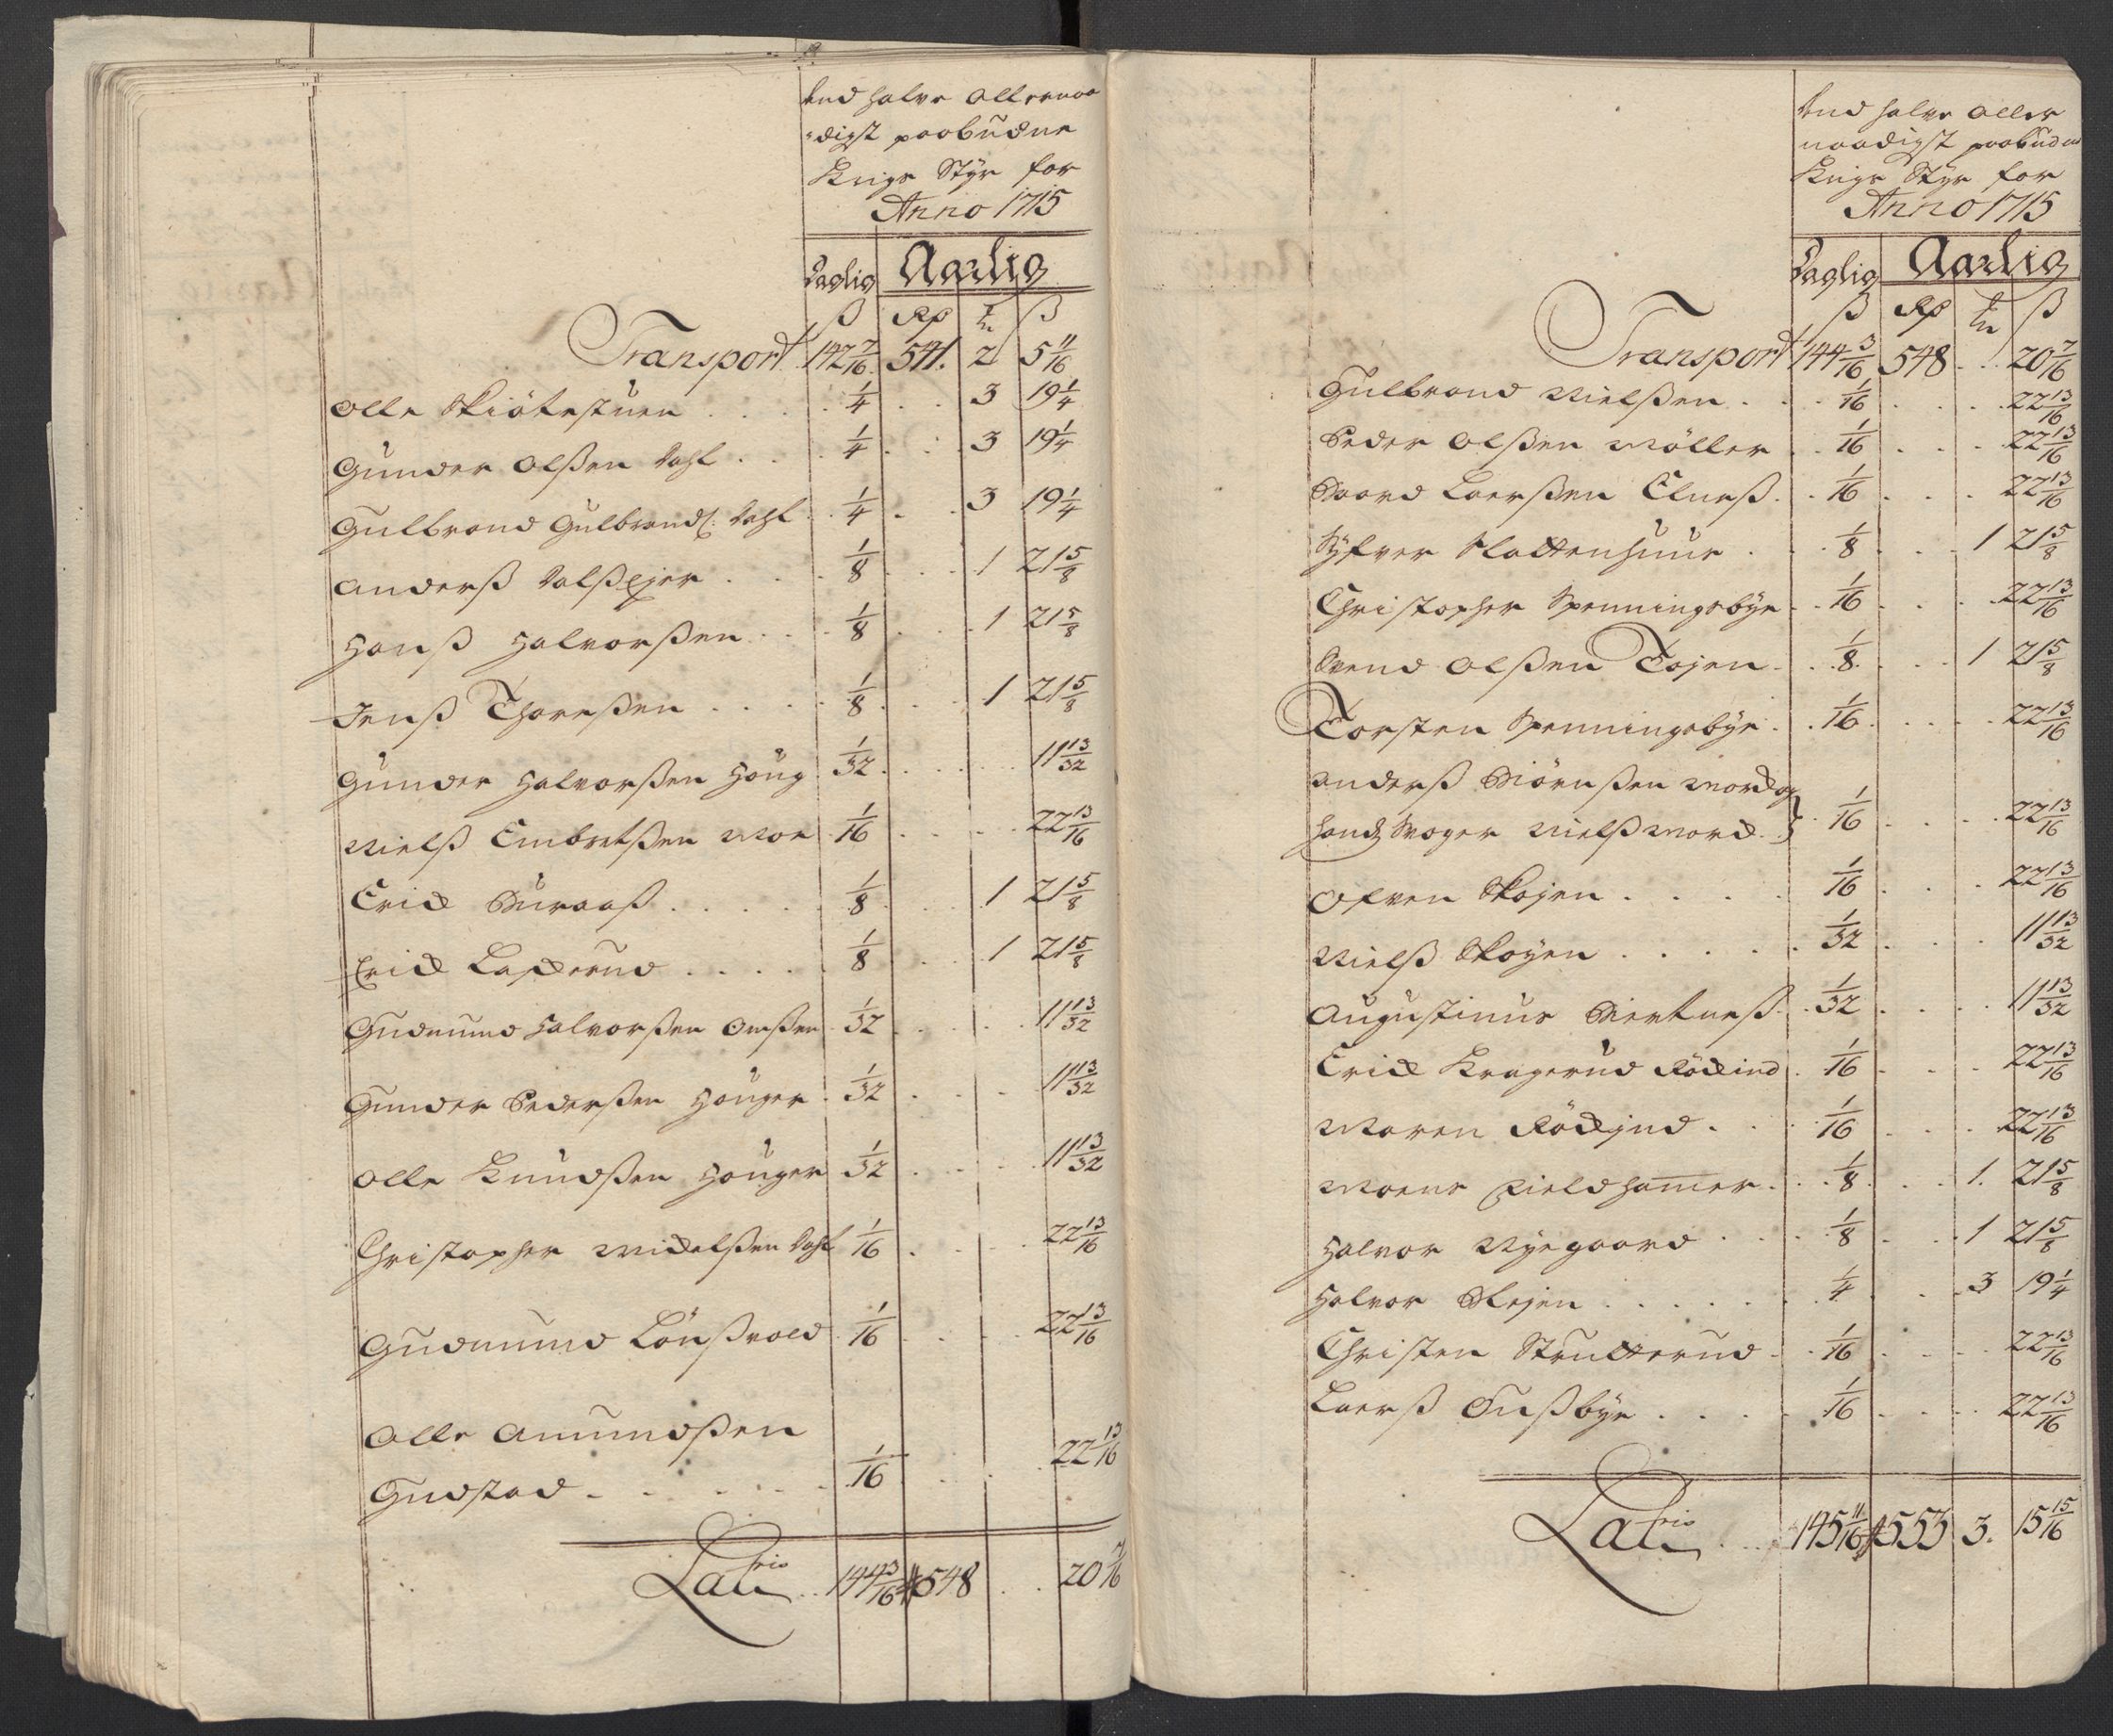 End halve Allernaa
-digst paabudne
Krigs Styr for
Anno 1715
Daglig Aarlig
ß Rd ß
Transport 142 7/16 541. 2 5 11/16
Olle Skiötestuen . . . . 1/4 . . 3 19 1/4
Gunder Olßen Dahl . . . 1/4 . . 3 19 1/4
Gulbrand Gulbrands: Dahl . 1/4 . . 3 19 1/4
Anderß Dalßejer . . . 1/8 . . 1 21 5/8
Hanß Halvorßen . . . 1/8 . . 1 21 5/8
Jenß Thoreßen . . . . 1/8 . . 1 21 5/8
Gunder Halvorßen Houg . 1/32 . . . . 11 13/32
Nielß Embretßen Moe 1/16 . . . . 22 13/16
Erich Buraaß . . . . . 1/8 . . 1 21 5/8
Erich . . . . . 1/8 . . 1 21 5/8
Gudmund Halvorßen 1/32 . . . . 11 13/32
Gunder Pederßen Houger . 1/32 . . . 11 13/32
Olle Knudßen Houger 1/32 . . . . 11 13/32
Christopher Michelßen Dahl 1/16 . . . . 22 13/16
Gudmund Lönßvold . 1/16 . . . . 22 13/16
Olle Amundßen
Gudstad . . . . . . 1/16 . . . 22 13/16
Lateris . . 144 3/16 548 . . 20 7/16
End halve Aller
naadigst paabudne
Krigs Styr for
Anno 1715
Daglig Aarlig
ß Rd ß
Transport 144 3/16 548 . . 20 7/16
Gulbrand Nielßen . . . 1/16 . . . . 22 13/16
Peder Olßen Möller . . 1/16 . . . 22 13/16
Baard Laerßen . . 1/16 . . . 22 13/16
Syfver Slattenhuur . . . 1/8 . . . 1 21 5/8
Christopher Spenningsbye . . 1/16 . . . 22 13/16
Svend Olßen Tojen . . . 1/8 . . . 1 21 5/8
Torsten Spenningsbye . . 1/16 . . . . 22 13/16
Anderß Biörnßen Mord og
hands Svoger Nielß Mord . } . 1/16 . . . . 22 13/16
Ofven Skojen . . . . 1/16 . . . 22 13/16
Nielß Skoyen . . . . . 1/32 . . . 11 13/32
Augustinus . . 1/32 . . . . 11 13/32
Erich Kragerud Rödind . 1/16 . . . 22 13/16
Maren Rödjnd . . . 1/16 . . . . 22 13/16
Moens Fieldhamer . . . 1/8 . . . 1. 21 5/8
Halvor Nyegaard . . . . 1/8 . . . 1 21 5/8
Halvor Slejen . . . . . . 1/4 . . . 3 19 1/4
Christen Strutterud . . 1/16 . . . 22 13/16
Laerß Sußbye . . . . 1/16 . . . 22 13/16
Lateris . . 145 11/16 553 3. 15 15/16